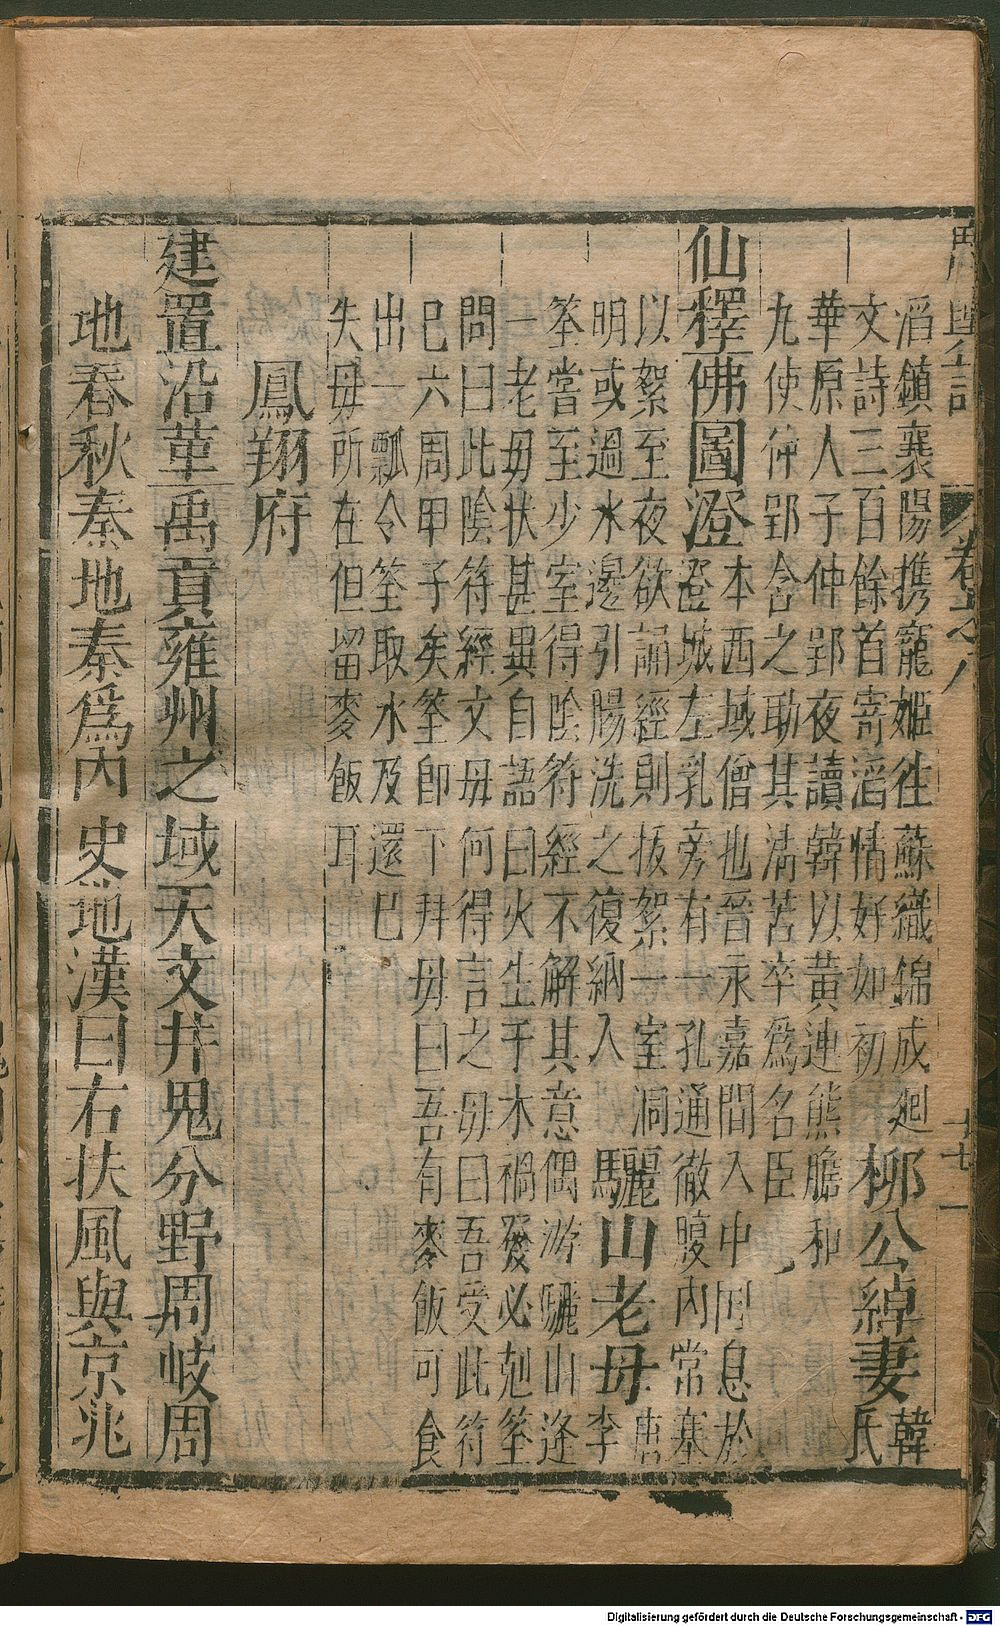 卷之八 十七
滔鎮襄陽携寵姬往蘇織錦成廻
文詩三百餘首寄滔情好如初
柳公綽妻
韓
氏
華原人子仲郢夜讀韓以黃連熊膽和
丸使仲郢含之助其淸苦卒爲名臣
仙釋佛圖澄
本西域僧也晉永嘉間入中囯息於
澄城左乳旁有一孔通徹腹內常塞
以絮至夜欲誦經則抜絮一室洞
明或過水邊引腸洗之復納入
驪山老毋
唐
李
筌嘗至少室得陰符經不解其意偶游驪山逢
一老毋狀甚異自語曰火生于木禍發必尅筌
問曰此陰符經文毋何得言之毋曰吾受此符
巳六周甲子矣筌卽下拜毋曰吾有麥飯可食
出一瓢令筌取水及還巳
失毋所在但留麥飯耳
鳳翔府
建置沿革禹貢雍州之域天文井鬼分野周岐周
地春秋秦地秦爲內史地漢曰右扶風與京兆
Digitalisierung gefördert durch die Deutsche Forschungsgemeinschaft - DFG